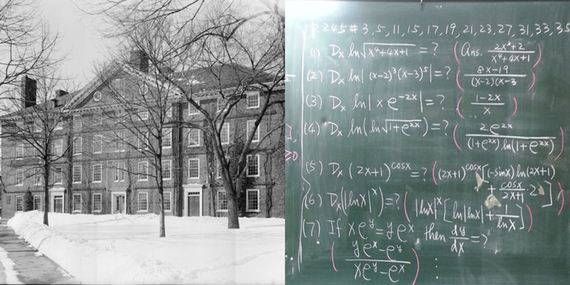 P. 245 # 3, 5, 11, 15, 17, 19, 21, 23, 27, 31, 33, 35
(1) Dx ln√(x⁴+4x+1) = ? (Ans. (2x³+2)/(x⁴+4x+1))
(2) Dx ln|(x-2)³(x-3)⁵| = ? ((8x-19)/((x-2)(x-3)))
(3) Dx ln|x e^(-2x)| = ? ((1-2x)/x)
(4) Dx ln(ln√(1+e^(2x))) = ? (2e^(2x)/((1+e^(2x)) ln(1+e^(2x))))
(5) Dx (2x+1)^(cosx) = ? ((2x+1)^(cosx) [(-sinx) ln(2x+1) + (cosx/(2x+1)) 2])
(6) Dx(|lnx|^x) = ? (|lnx|^x [ln|lnx| + 1/lnx])
(7) If xe^y = ye^x then dy/dx = ?
((ye^x - e^y)/(xe^y - e^x))